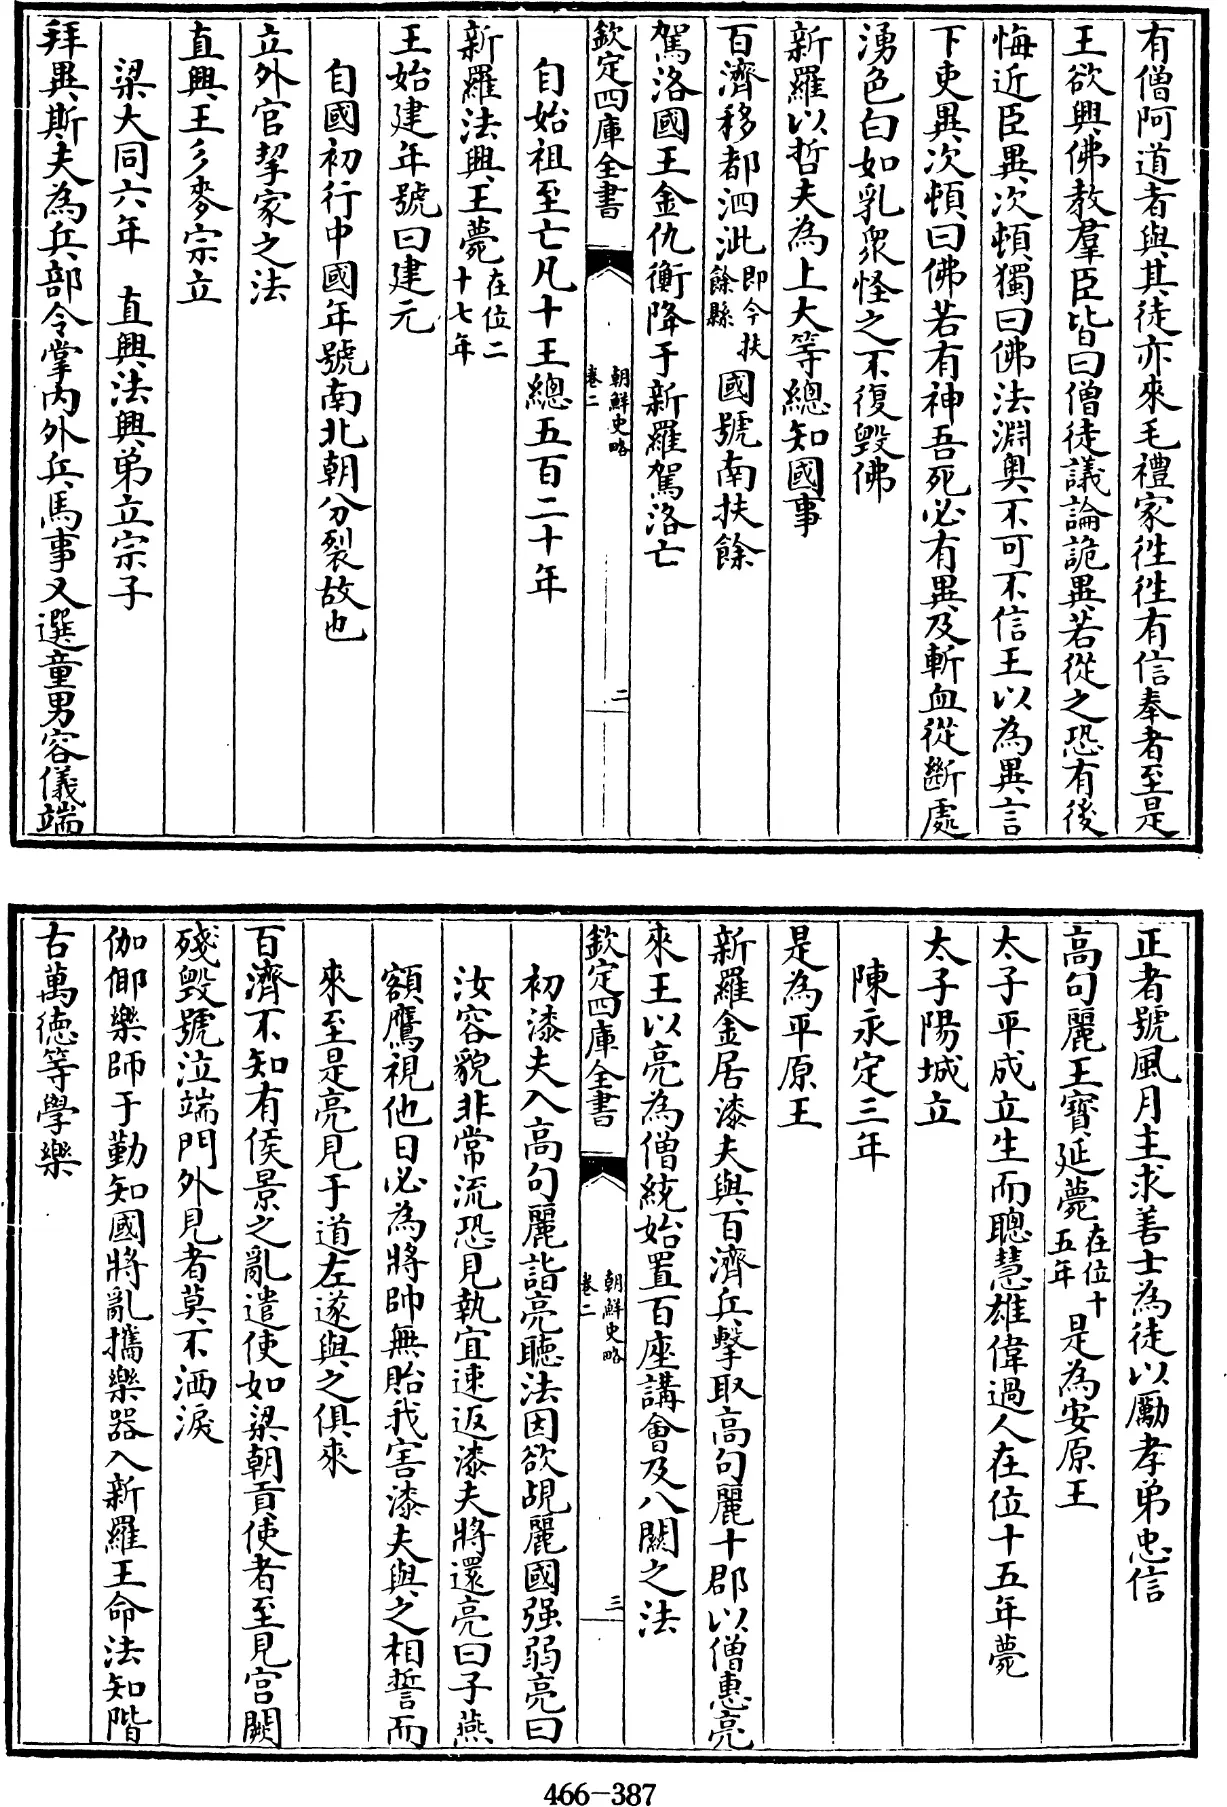 有僧阿道者與其徒亦來毛禮家徃徃有信奉者至是
王欲興佛教羣臣皆曰僧徒議論詭異若從之恐有後
悔近臣異次頓獨曰佛法淵奥不可不信王以為異言
下吏異次頓曰佛若有神吾死必有異及斬血從斷處
湧色白如乳衆怪之不復毁佛
新羅以哲夫為上大等總知國事
百濟移都泗沘即今扶餘縣國號南扶餘
駕洛國王金仇衡降于新羅駕洛亡
欽定四庫全書
朝鮮史略
卷二
二
自始祖至亡凡十王總五百二十年
新羅法興王薨在位二十七年
王始建年號曰建元
自國初行中國年號南北朝分裂故也
立外官挈家之法
直興王彡麥宗立
梁大同六年 直興法興弟立宗子
拜異斯夫為兵部令掌内外兵馬事又選童男容儀端
正者號風月主求善士為徒以勵孝弟忠信
高句麗王寳延薨在位十五年是為安原王
太子平成立生而聰慧雄偉過人在位十五年薨
太子陽城立
陳永定三年
是為平原王
新羅金居漆夫與百濟兵擊取高句麗十郡以僧惠亮
來王以亮為僧統始置百座講會及八關之法
欽定四庫全書
朝鮮史略
卷二
三
初漆夫入高句麗詣亮聽法因欲覘麗國强弱亮曰
汝容貌非常流恐見執宜速返漆夫將還亮曰子燕
額鷹視他日必為將帥無貽我害漆夫與之相誓而
來至是亮見于道左遂與之俱來
百濟不知有侯景之亂遣使如梁朝貢使者至見宫闕
殘毁號泣端門外見者莫不洒淚
伽倻樂師于勤知國將亂攜樂器入新羅王命法知階
古萬德等學樂
466-387